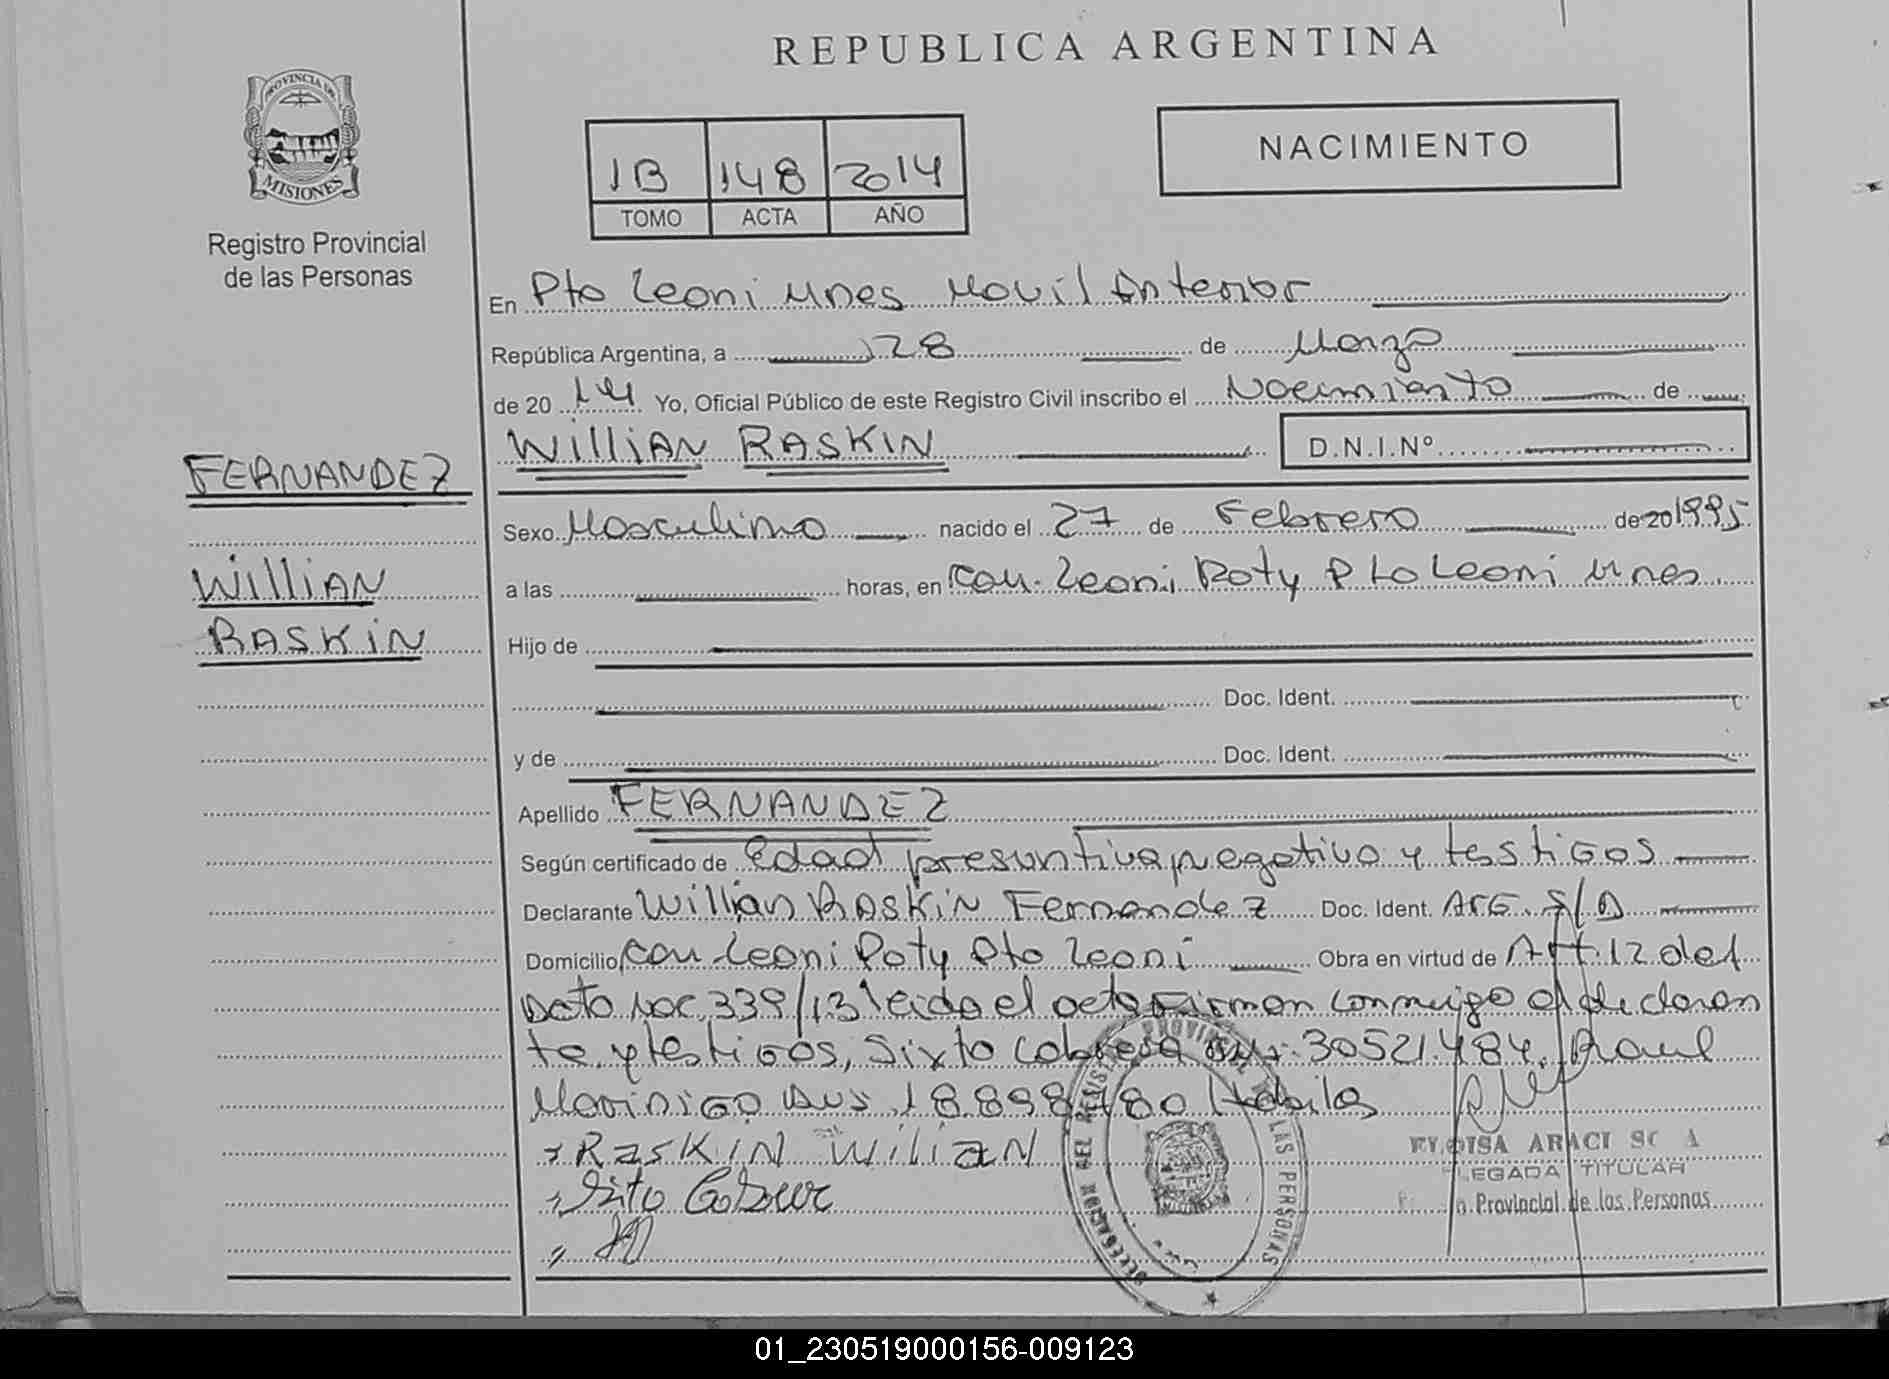 REPUBLICA ARGENTINA
PROVINCIA DE
MISIONES
Registro Provincial
de las Personas
1B 148 2014
TOMO ACTA AÑO
NACIMIENTO
En Pto Leoni Mnes Movil Anterior
República Argentina, a 28 de Marzo
de 20 14 Yo, Oficial Público de este Registro Civil inscribo el Nacimiento de
WilliAN RASKIN D.N.I.Nº
FERNANDEZ
WilliAN
RASKiN
Sexo Masculino nacido el 27 de Febrero de 20 1995
a las horas, en Com. Leoni Poty Pto Leoni Mnes
Hijo de
Doc. Ident.
y de Doc. Ident.
Apellido FERNANDEZ
Según certificado de Edad presuntiva, negativo y testigos
Declarante Willian RASKiN Fernandez Doc. Ident. ArG. S/D
Domicilio Com Leoni Poty Pto Leoni Obra en virtud de Art. 12 del
Dcto Nac. 339/13 leida el acta Firman conmigo el declaran
te y testigos, Sixto Cabrera 30521.484. Raul
Marinigo DNI 18.898.780 Habiles
RASKiN WiliAN
DELEGACION DEL REGISTRO PROVINCIAL DE LAS PERSONAS
ARACI
EGADA TITULAR
Provincial de las Personas
01_230519000156-009123